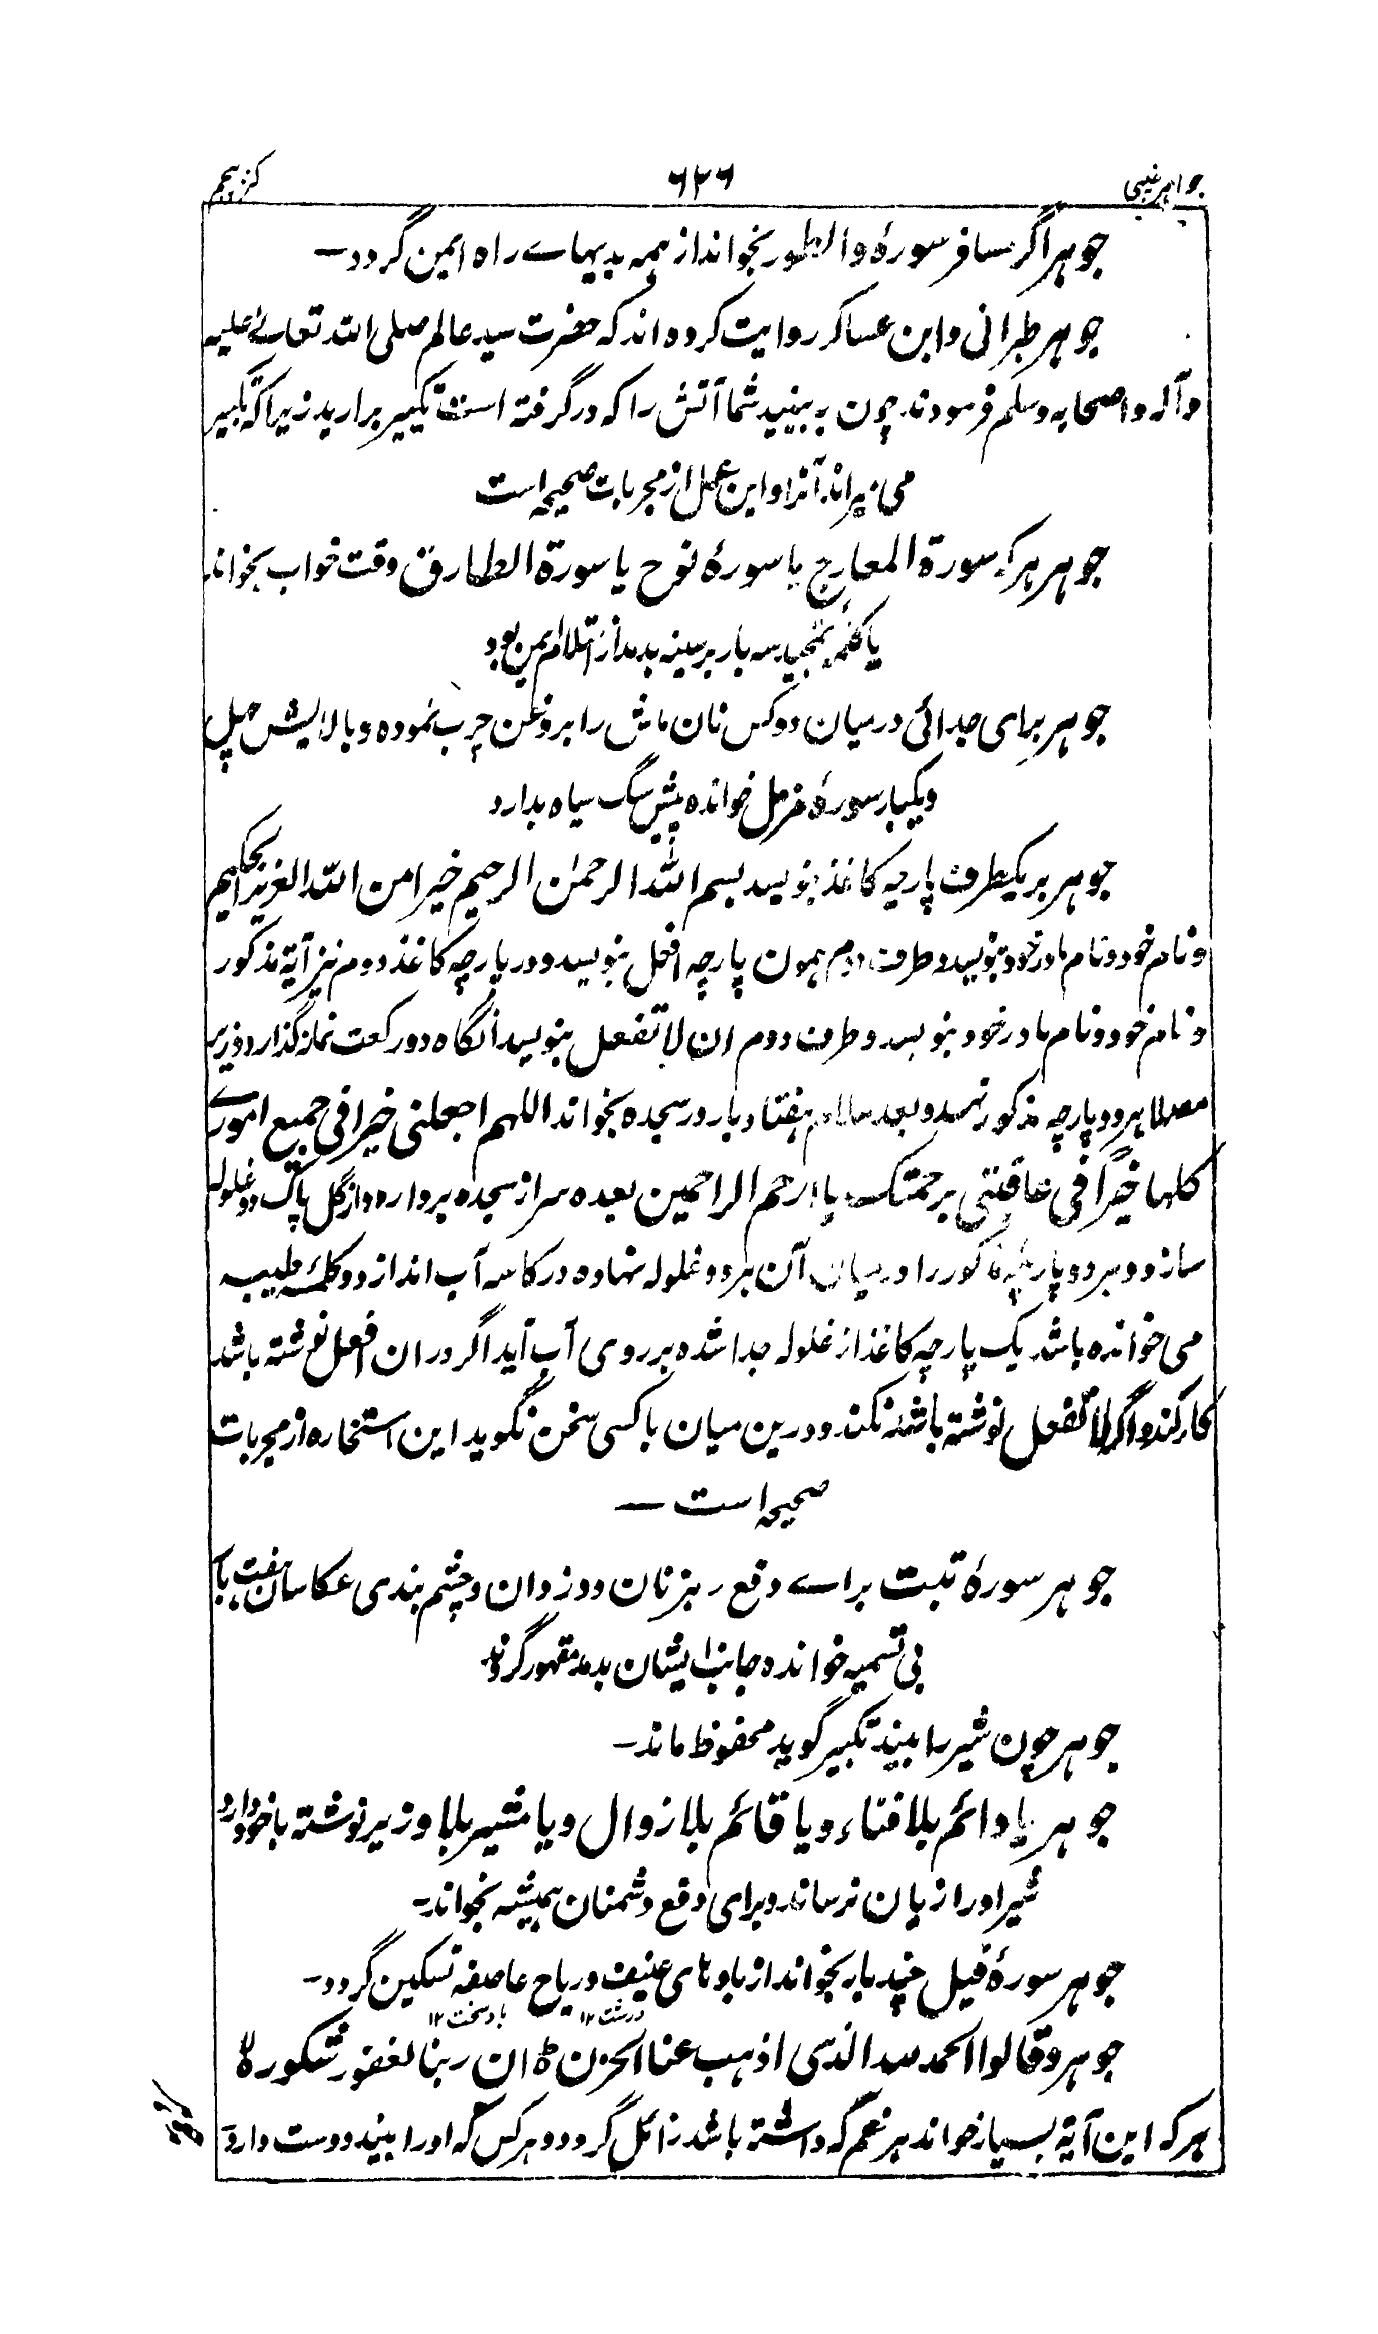 جواہر غیبی ۶۲۶ کنز پنجم
جوہر اگر مسافر سورۂ والطور بخواند از ہمہ بدیہاے راہ ایمن گردد—
جوہر طبرانی و ابن عساکر روایت کردہ اند کہ حضرت سید عالم صلی اللہ تعالےٰ علیہ
وآلہ واصحابہ وسلم فرمودند چون بہ بینید شما آتش را کہ درگرفتہ است تکبیر برارید زیراکہ تکبیر
می میراند آنرا و این عمل از مجربات صحیحہ است
جوہر ہر کہ سورۃ المعارج یا سورۂ نوح یا سورۃ الطارق وقت خواب بخواند
یا کلمہ تمجید سہ بار بر سینہ بدمد از احتلام ایمن بود
جوہر برای جدائی درمیان دوکس نان ماش را بروغن چرب نمودہ و بالایش چہل
و یکبار سورۂ مزمل خواندہ پیش سگ سیاہ بدارد
جوہر بر یکطرف پارچہ کاغذ بنویسد بسم اللہ الرحمٰن الرحیم خیرا من اللہ العزیز الحکیم
و نام خود و نام مادر خود بنویسد و طرف دوم ہمون پارچہ افعل بنویسد و در پارچہ کاغذ دوم نیز آیۃ مذکور
و نام خود و نام مادر خود بنویسد و طرف دوم ان لا تفعل بنویسد آنگاہ دو رکعت نماز گذارد و زیر
مصلا ہردو پارچہ مذکور نہد و بعد سلام ہفتاد بار در سجدہ بخواند اللہم اجعلنی خیرا فی جمیع اموری
کلہا خیراً فی عاقبتی برحمتک یا ارحم الراحمین بعدہ سر از سجدہ بردارد و از گل پاک دو غلولہ
سازد و ہردو پارچہ مذکور را درمیان آن ہردو غلولہ نہادہ در کاسہ آب اندازد و کلمہ طیبہ
می خواندہ باشد یک پارچہ کاغذ از غلولہ جدا شدہ بر روی آب آید اگر دران افعل نوشتہ باشد
کار کند و اگر لا تفعل نوشتہ باشد نکند و درین میان باکسی سخن نگوید این استخارہ از مجربات
صحیحہ است —
جوہر سورۂ تبت براے دفع رہزنان و دزدان و چشم بندی عکاسان ہفت بار
بی تسمیہ خواندہ جانب ایشان بدمد مقہور گردند
جوہر چون شیر را بیند تکبیر گوید محفوظ ماند—
جوہر یا دائم بلا فناء و یا قائم بلا زوال و یا مشیر بلا وزیر نوشتہ باخود دارد
شیر او را زیان نرساند و برای دفع دشمنان ہمیشہ بخواند—
جوہر سورۂ فیل چند بار بخواند از بادہای عنیف و ریاح عاصفہ تسکین گردد—
درشت ۱۲ باد سخت ۱۲
جوہر وقالوا الحمد للہ الذی اذہب عنا الحزن ط ان ربنا لغفور شکور ہ لا
ہر کہ این آیۃ بسیار خواند ہر غم کہ داشتہ باشد زائل گردد و ہر کس کہ اورا بیند دوست دارد